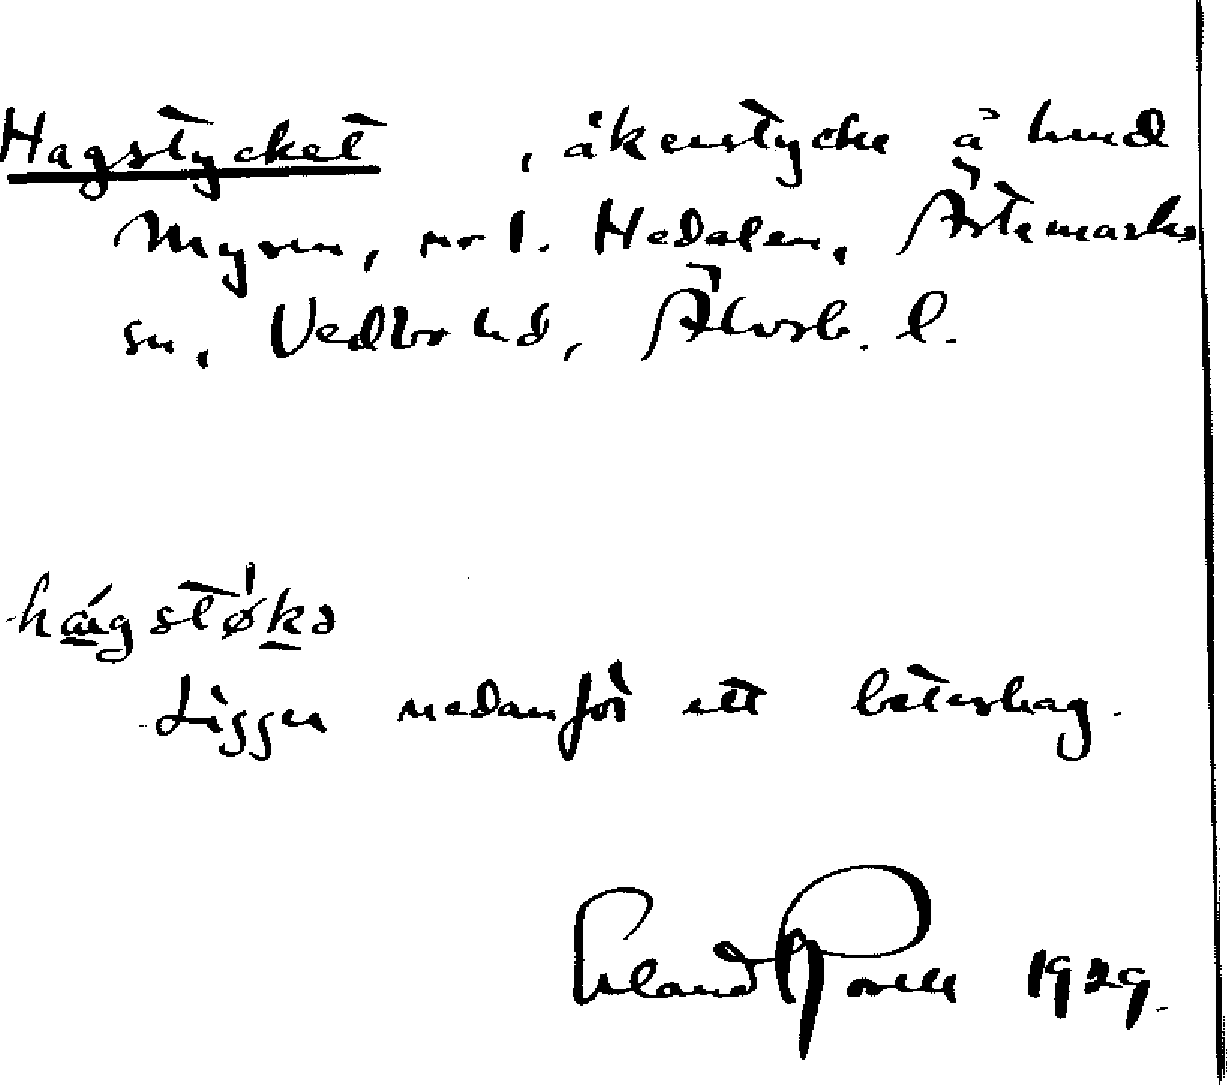 Hagstycket, åkerstycke å hmd
Myren, nr 1. Hedalen, Ärtemarks
sn, Vedbo hd, Älvsb. l.
hágstø̍kə
Ligger nedanför ett beteshag.
Erland Rosell 1929.